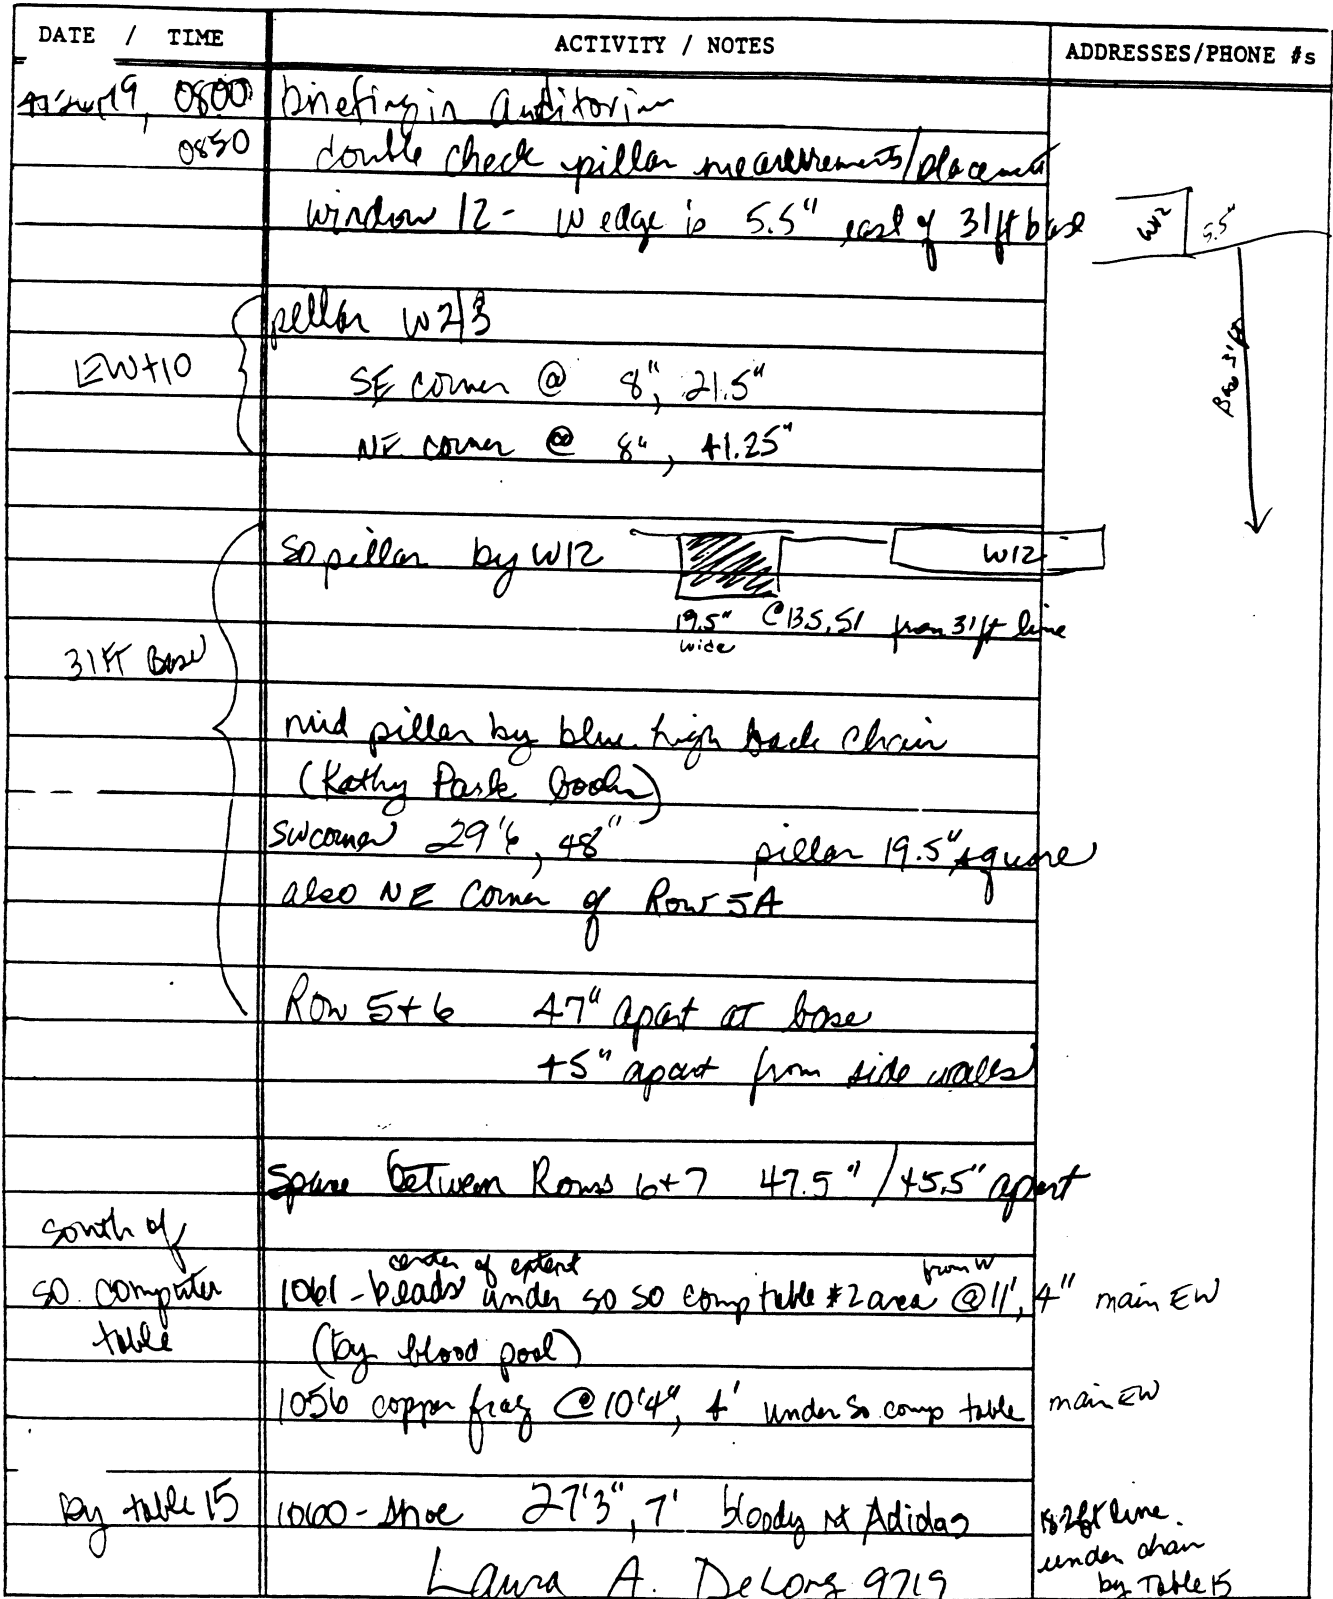 DATE / TIME ACTIVITY / NOTES ADDRESSES/PHONE #s
19, 0800 briefing in auditorium
0850 double check pillar measurements/placement
window 12 - W edge is 5.5" east of 31ft base
W12 5.5"
Base 31ft
pillar W2/3
EW+10
SE corner @ 8", 21.5"
NE corner @ 8", 41.25"
so pillar by W12 W12
19.5" wide @13.5, 51 from 31ft line
31 FT Base
mid pillar by blue high back chair
(Kathy Park book)
SW corner 29'6, 48" pillar 19.5" square
also NE Corner of Row 5A
Row 5+6 47" apart at base
45" apart from side walls
Space between Rows 6+7 47.5" / 45.5" apart
South of so. computer table
center of extent from W
1061 - beads under so so comp table #2 area @ 11', 4" main EW
(by blood pool)
1056 copper frag @ 10'4", 4' under so. comp table main EW
by table 15 1060 - shoe 27'3", 7' bloody rt Adidas
18.2ft line. under chair by Table 15
Laura A. DeLong 9719